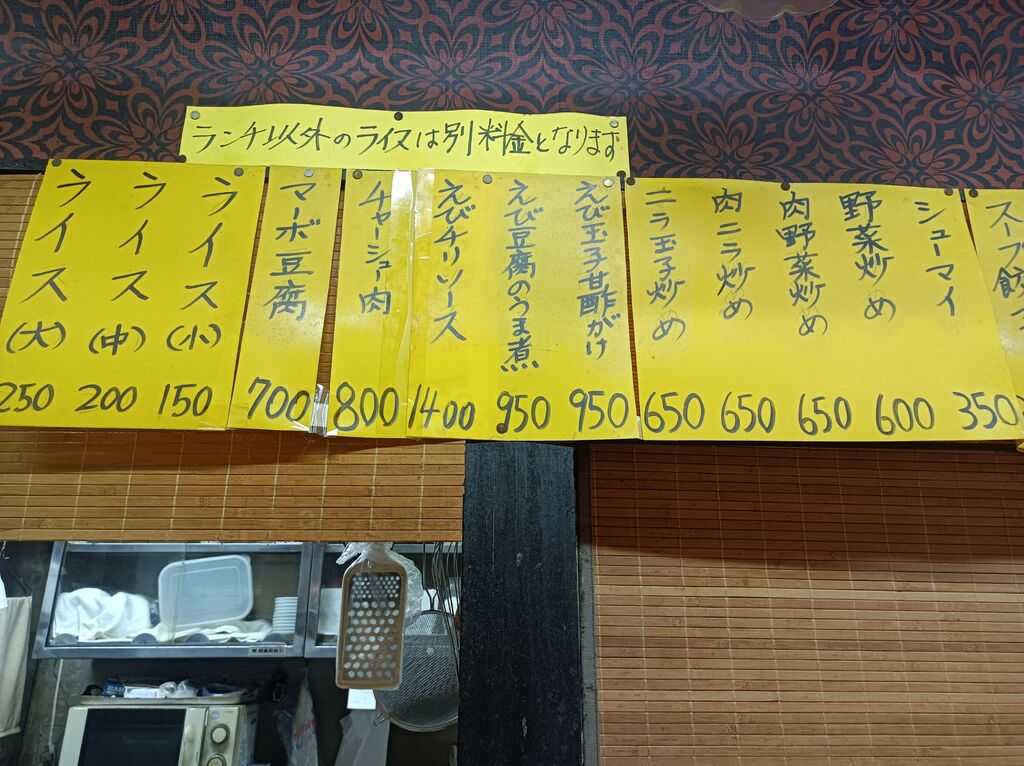 ランチ以外のライスは別料金となります
スープ餃
シューマイ
350
野菜炒め
600
肉野菜炒め
650
肉ニラ炒め
650
ニラ玉子炒め
650
えび玉子甘酢がけ
950
えび豆腐のうま煮
950
えびチリソース
1400
チャーシュー肉
800
マーボ豆腐
700
ライス(小)
150
ライス(中)
200
ライス(大)
250